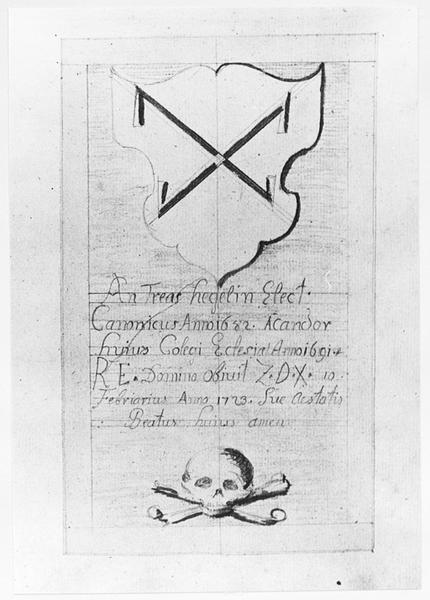 An Treas hegelin Elect:
Canonicus Anno 1682. Acandor
hujus Colegi Eclesiæ Anno 1691
R E. Domino Obiuit Z. D. X. 10
Februarius Anno 1723. Sue Aestatis
Beatus hujus amen